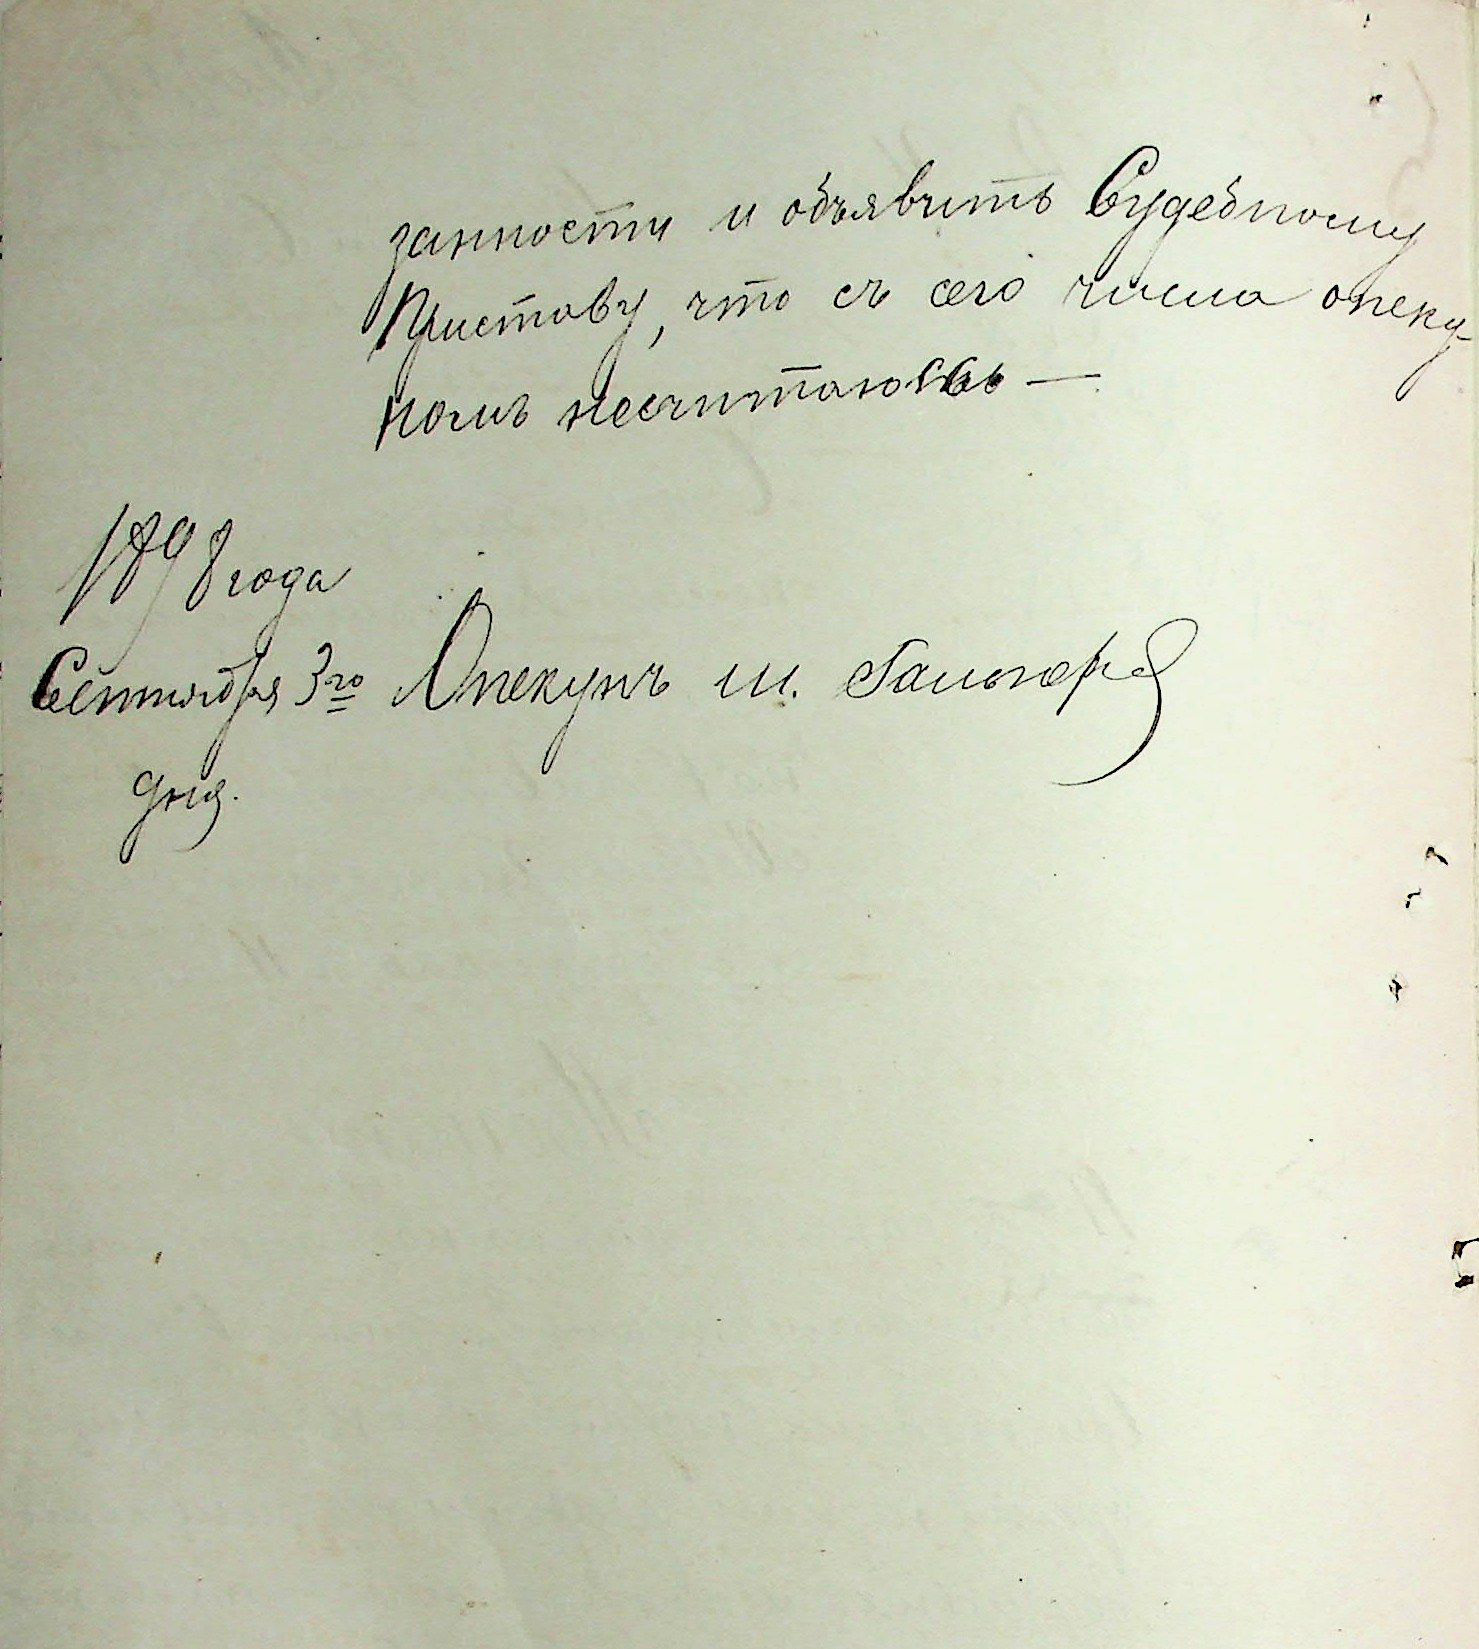 занности и объявить Судебному
Приставу, что съ сего числа опеку-
номъ несчитаюсь —
1898 года
Сентября 3го Опекунъ Ш.
дня.